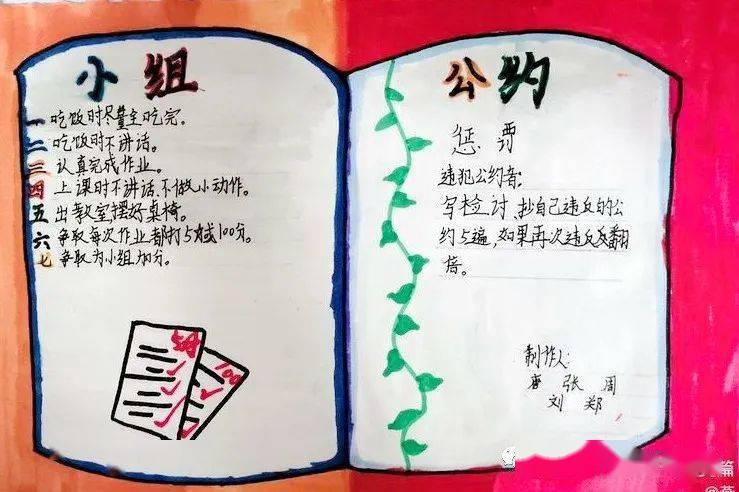 小组
一 吃饭时尽量全吃完。
二 吃饭时不讲话。
三 认真完成作业。
四 上课时不讲话、不做小动作。
五 出教室摆好桌椅。
六 争取每次作业都打5☆或100分。
七 争取为小组加分。
5☆
100
公约
惩罚
违犯公约者：
写检讨、抄自己违反的公
约5遍，如果再次违反反翻
倍。
制作人：
唐 张 周
刘 郑
篇